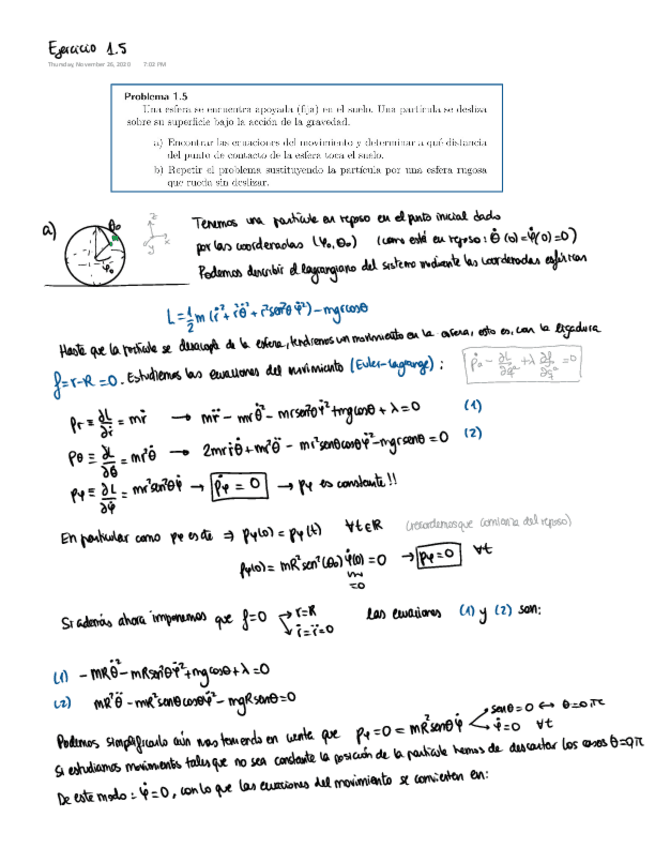 Ejercicio 1.5
Thursday, November 26, 2020 7:02 PM
Problema 1.5
Una esfera se encuentra apoyada (fija) en el suelo. Una partícula se desliza
sobre su superficie bajo la acción de la gravedad.
a) Encontrar las ecuaciones del movimiento y determinar a qué distancia
del punto de contacto de la esfera toca el suelo.
b) Repetir el problema sustituyendo la partícula por una esfera rugosa
que rueda sin deslizar.
a)
θ₀
φ₀
z
x
y
Tenemos una partícula en reposo en el punto inicial dado
por las coordenadas (φ₀, θ₀) (como está en reposo: θ̇(0)=φ̇(0)=0)
Podemos describir el lagrangiano del sistema mediante las coordenadas esféricas
L = 1/2 m (ṙ² + r²θ̇² + r²sen²θ φ̇²) - mgrcosθ
Hasta que la partícula se desacople de la esfera, tendremos un movimiento en la esfera, esto es, con la ligadura
f = r-R = 0. Estudiemos las ecuaciones del movimiento (Euler-Lagrange):
+ λ ∂f/∂qᵅ = 0
Pr ≡ ∂L/∂ṙ = mṙ → mr̈ - mrθ̇² - mrsen²θφ̇² + mgcosθ + λ = 0 (1)
Pθ ≡ ∂L/∂θ̇ = mr²θ̇ → 2mrṙθ̇ + mr²θ̈ - mr²senθcosθφ̇² - mgrsenθ = 0 (2)
Pφ ≡ ∂L/∂φ̇ = mr²sen²θφ̇ → ṗφ = 0 → pφ es constante!!
En particular como pφ es cte ⇒ pφ(0) = pφ(t) ∀t∈ℝ (recordemos que comienza del reposo)
pφ(0) = mR²sen²(θ₀)φ̇(0) = 0 → pφ = 0 ∀t
=0
Si además ahora imponemos que f=0 → r=R las ecuaciones (1) y (2) son:
→ ṙ=r̈=0
(1) -mRθ̇² - mRsen²θφ̇² + mgcosθ + λ = 0
(2) mR²θ̈ - mR²senθcosθφ̇² - mgRsenθ = 0
Podemos simplificarlo aún más teniendo en cuenta que pφ = 0 = mR²sen²θφ̇ → senθ=0 ↔ θ=0,π
→ φ̇=0 ∀t
Si estudiamos movimientos tales que no sea constante la posición de la partícula hemos de descartar los casos θ=0,π
De este modo: φ̇=0, con lo que las ecuaciones del movimiento se convierten en: